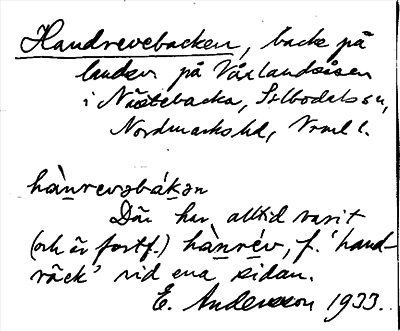 Handrevebacken, backe på
landsv på Vårlandsåsen
i Nästebacka, Silbodals sn,
Nordmarks hd, Vrml l.
hànrevəbákən
Där har alltid varit
(och är fortf.) hànrév, f. 'hand-
räck' vid ena sidan.
E. Andersson 1933.